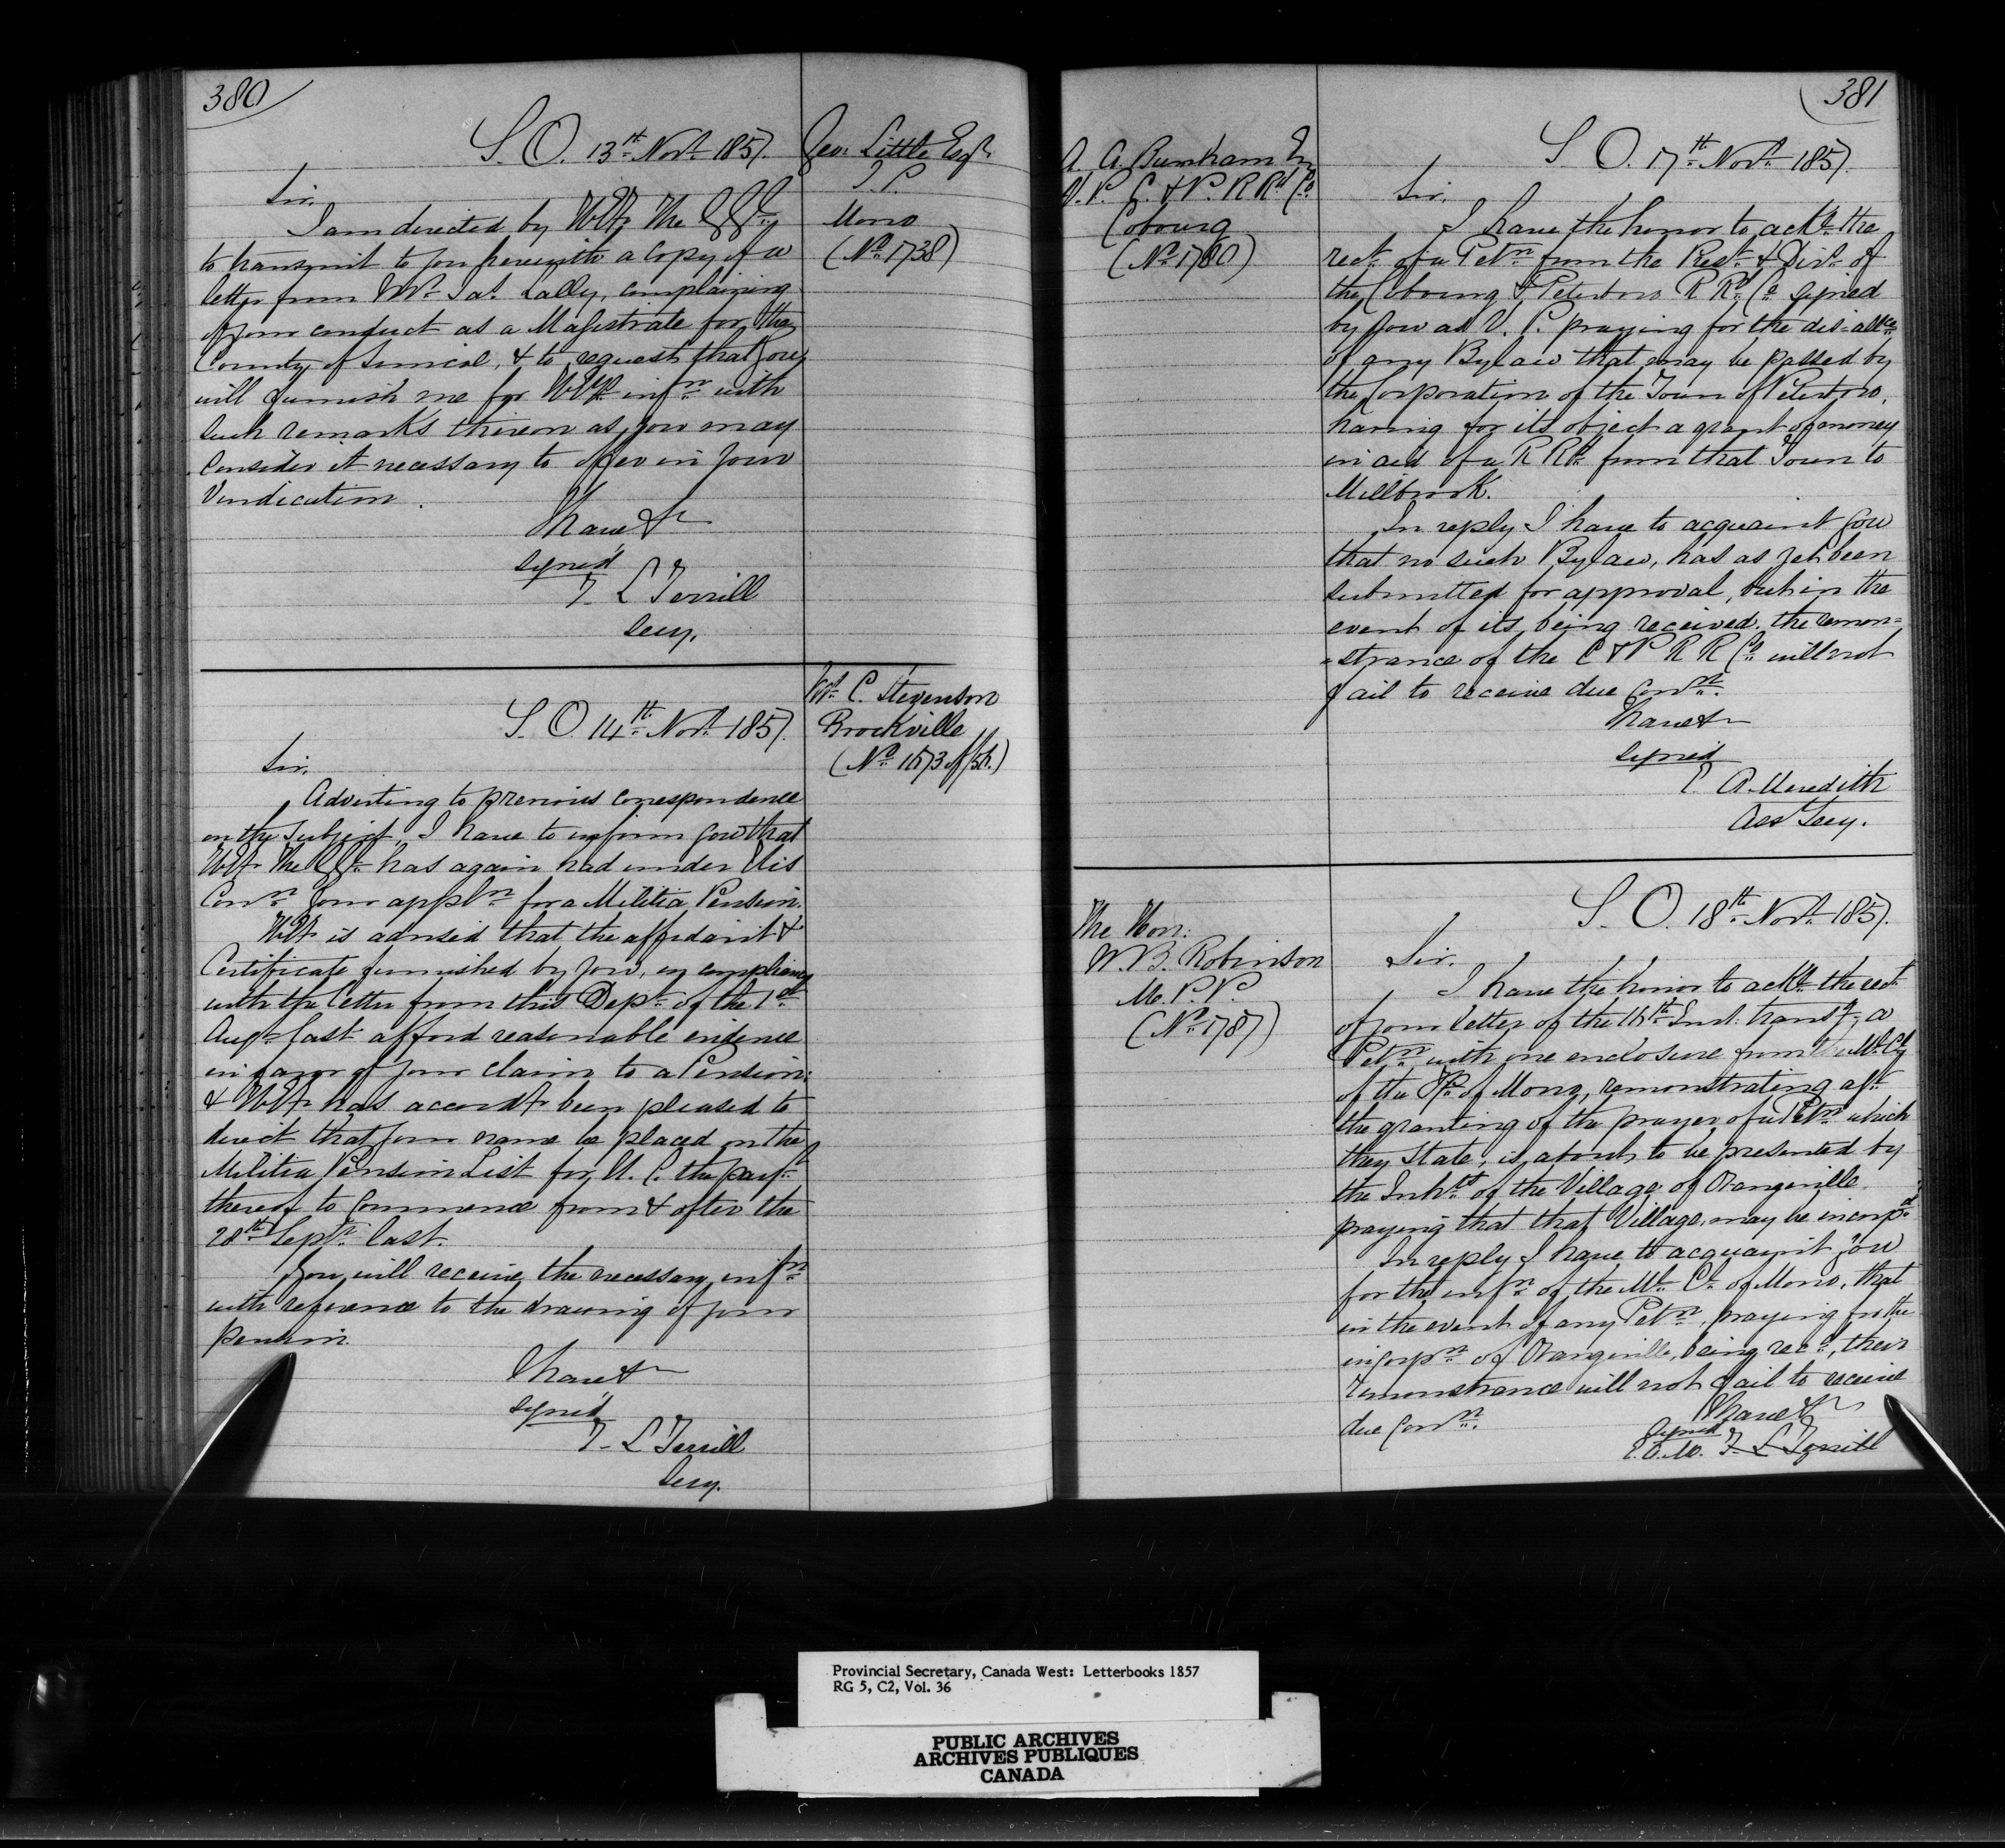 380
S. O. 13th Novr 1857.
Geo. Little Esqr
J. P.
Mono
(No 1738)
Sir,
I am directed by H.E. The
to transmit to you herewith a Copy of a
letter from Mr Jas. Lally, complaining
of your conduct as a Magistrate for the
County of Simcoe, & to request that you
will furnish me for H.E's infn with
such remarks thereon as you may
Consider it necessary to offer in your
Vindication.
I have &c
signed
T. L. Terrill
Secy.
Wm C. Stevenson
Brockville
S. O. 14th Novr 1857.
Sir,
Adverting to previous correspondence
on the subject, I have to inform you that
H.E. The has again had under His
Conn your appln for a Militia Pension.
H.E. is advised that the affidavit &
Certificate furnished by you, in compliance
with the letter from this Dept of the 1st
Augt last afford reasonable evidence
in favor of your claim to a Pension:
& H.E. has accordy been pleased to
direct that your name be placed on the
Militia Pension List for U. C. the payt
thereof to Commence from & after the
28th Septr last.
You will receive the necessary infn
with reference to the drawing of your
pension.
I have &c
signed
T. L. Terrill
Secy.
381
A. A. Burnham Esq
V. P. C. & P. R Rd Co
Cobourg
(No 1780)
S. O. 17th Novr 1857.
Sir,
I have the honor to ackn the
rect of a Petn from the Prest & Dirs of
the Cobourg & Peterboro R Rd Co signed
by you as V. P. praying for the dis-allce
of any Bylaw that may be passed by
the Corporation of the Town of Peterboro,
having for its object a grant of money
in aid of a R Rd from that Town to
Millbrook.
In reply I have to acquaint you
that no such Bylaw, has as yet been
submitted for approval, but in the
event of its being received, the remon=
=strance of the C & P R R Co will not
fail to receive due Conn.
I have &c
signed
E. A. Meredith
Ass Secy.
The Hon:
W. B. Robinson
M. P. P.
(No 1787)
S. O. 18th Novr 1857.
Sir.
I have the honor to ackn the rect
of your letter of the 16th Inst. transg a
Petn with one enclosure from the Ml Cl
of the Tp of Mono, remonstrating agt
the granting of the prayer of a Petn which
they State, is about to be presented by
the Inhts of the Village of Orangeville
praying that that Village may be incorpd
In reply I have to acquaint you
for the infn of the Ml Cl of Mono, that
in the event of any Petn, praying for the
incorpn of Orangeville, being recd, their
remonstrance will not fail to receive
due Conn.
I have &c
signed
E. A. M. T. L. Terrill
Provincial Secretary, Canada West: Letterbooks 1857
RG 5, C2, Vol. 36
PUBLIC ARCHIVES
ARCHIVES PUBLIQUES
CANADA